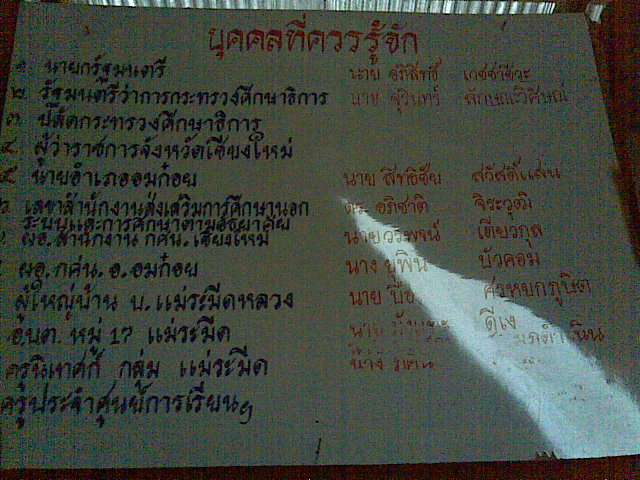 บุคคลที่ควรรู้จัก
๑ นายกรัฐมนตรี นาย อภิสิทธิ์ เวชชาชีวะ
๒ รัฐมนตรีว่าการกระทรวงศึกษาธิการ นาย จุรินทร์ ลักษณะวิศิษฏ์
๓ ปลัดกระทรวงศึกษาธิการ
๔ ผู้ว่าราชการจังหวัดเชียงใหม่
๕ นายอำเภออมก๋อย นาย สิทธิชัย สวัสดิ์แสน
เลขาสำนักงานส่งเสริมการศึกษานอก ดร. อภิชาติ จิระวุฒิ
ระบบและการศึกษาตามอัธยาศัย
ผอ. สำนักงาน กศน. เชียงใหม่ นาย เตียวกุล
ผอ. กศน. อ. อมก๋อย นาง ยุพิน บัวคอม
ผู้ใหญ่บ้าน บ. แม่ระมีดหลวง นาย
อบต. หมู่ 17 แม่ระมีด นาย
ครูนิเทศก์ กลุ่ม แม่ระมีด
ครูประจำศูนย์การเรียนฯ